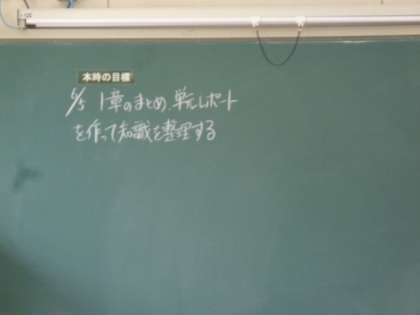 本時の目標
6/5 1章のまとめ、単元レポート
を作って知識を整理する